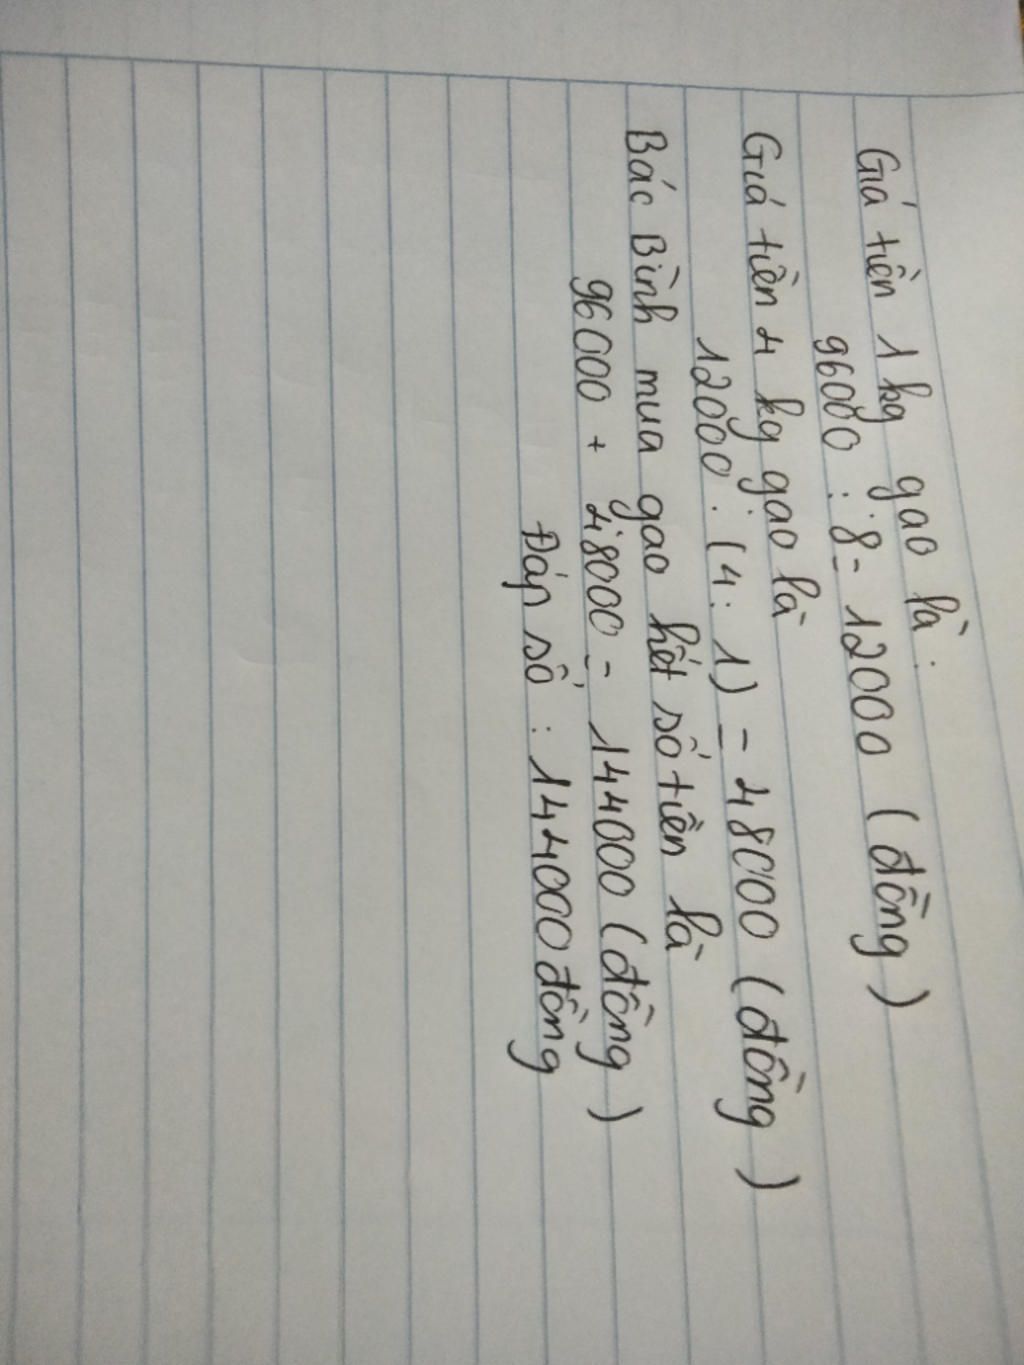 Giá tiền 1 kg gao là:
96000 : 8 = 12000 (đồng)
Giá tiền 4 kg gao là
12000 : (4 : 1) = 48000 (đồng)
Bác Bình mua gao hết số tiền là
96000 + 48000 = 144000 (đồng)
Đáp số : 144000 đồng